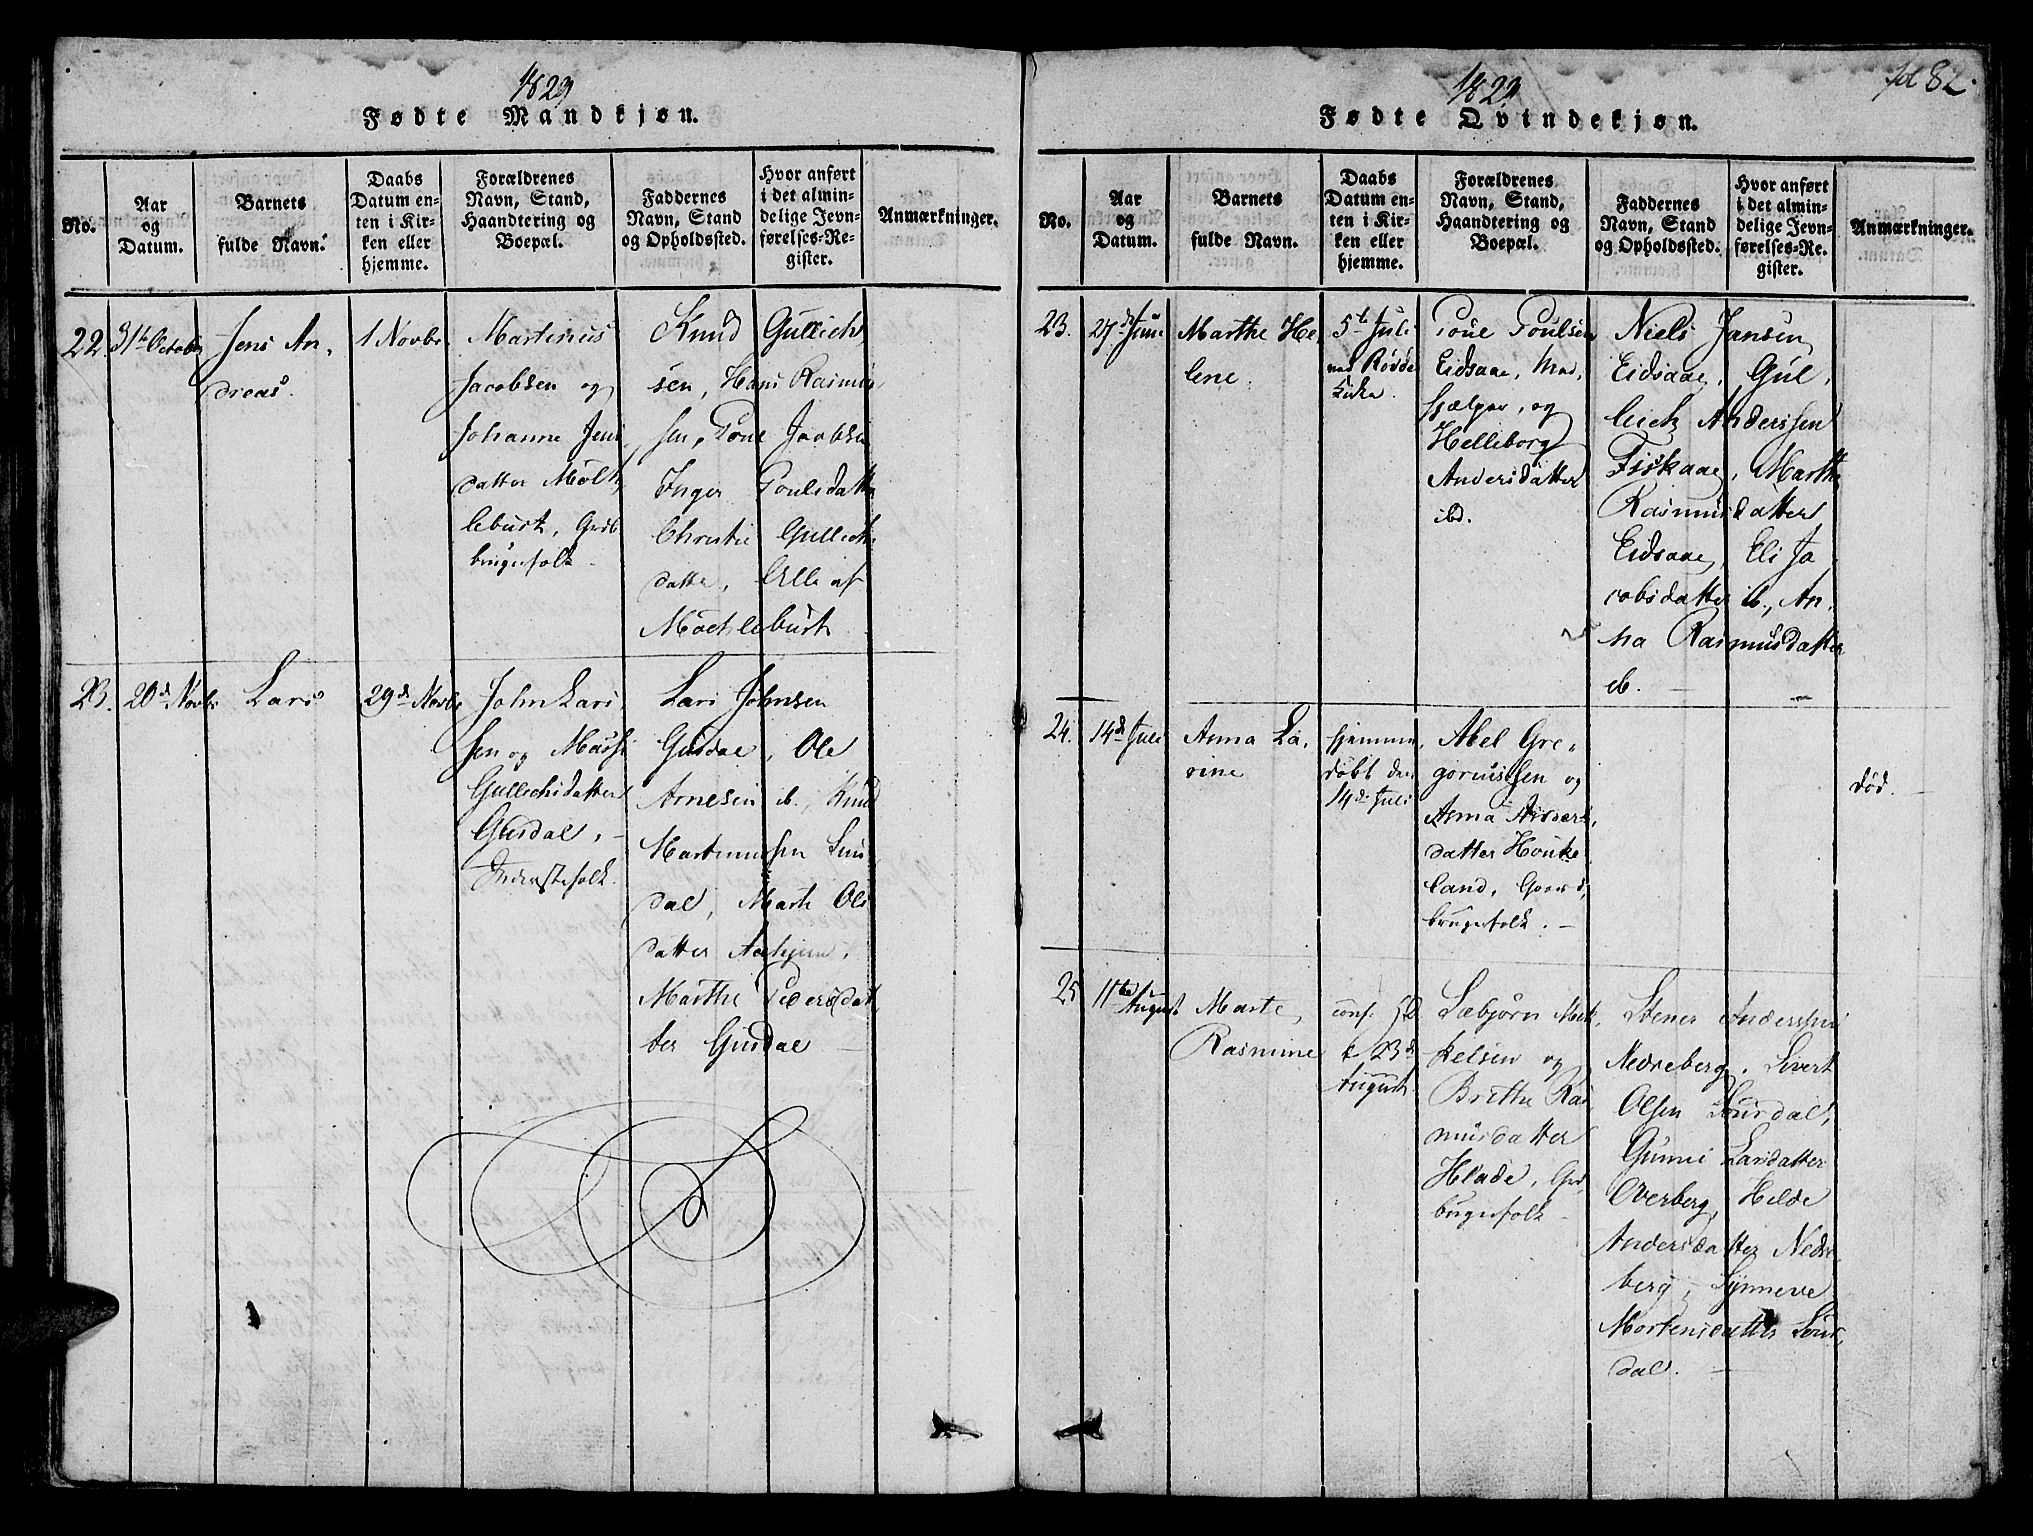 1829
Fødte Mandkjøn.
No.
Aar
og
Datum.
Barnets
fulde Navn.
Daabs
Datum en-
ten i Kir-
ken eller
hjemme.
Forældrenes
Navn, Stand,
Haandtering og
Boepæl.
Faddernes
Navn, Stand
og Opholdssted.
Hvor anført
i det almin-
delige Jevn-
førelses-Re-
gister.
Anmærkninger.
22
31te October
Jens An-
dreas.
1 Novbr
Martinus
Jacobsen og
Johanne Jens
datter Mölt
lebust, Grd
brugerfolk
Knud Gullich
sen, Hans Rasmus
sen, Poul Jacobsen
Inger Poulsdatter
Christi Gullich
datter, Alle af
Möcklebust
23.
20d Novbr
Lars
29d Novbr
John Lars
sen og Marthe
Gullichsdatter
Gusdal,
Inderstefolk.
Lars Johnsen
Gusdal, Ole
Arnesen ib., Knud
Martinussen Sun
dal, Marte Ols
datter
Marthe Pedersdat
ter Gusdal
1829
Fødte Qvindekjøn.
fol 82.
No.
Aar
og
Datum.
Barnets
fulde Navn.
Daabs
Datum en-
ten i Kir-
ken eller
hjemme.
Forældrenes
Navn, Stand,
Haandtering og
Boepæl.
Faddernes
Navn, Stand
og Opholdssted.
Hvor anført
i det almin-
delige Jevn-
førelses-Re-
gister.
Anmærkninger.
23.
27de Juni
Marthe He-
lene.
5te Juli
ved Røvde
Kirke.
Poul Poulsen
Eidsaae, Med-
hjælper, og
Helleborg
Andersdatter
ibd.
Niels Jansen
Eidsaae, Gul-
leich Anderssen
Fiskaae, Marthe
Rasmusdatter
Eidsaae, Eli Ja
cobsdatter ib., An-
na Rasmusdatter
ib.
24.
14de Juli
Anna La-
rine
hjemme
døbt den
14de Juli
Abel Gre-
goriussen og
Anna Anders-
datter Houke
land, Gaard-
brugerfolk.
død.
25
11te August
Marte
Rasmine
conf. HD
d 23d
August
Sæbjørn Mik-
kelsen og
Brithe Ras
musdatter
Hlade, Grd-
brugerfolk
Stener Anderssen
Nedreberg, Sivert
Olsen Sourdal,
Gunni Larsdatter
Overberg, Helde
Andersdatter Nedre
berg, Synneve
Mortensdatter Sour-
dal.